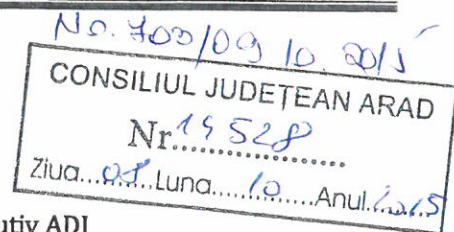 No. 703/09 10. 2015
CONSILIUL JUDEȚEAN ARAD
Nr. 14528
Ziua.... Luna.... 10 ....Anul. 2015
utiv ADI